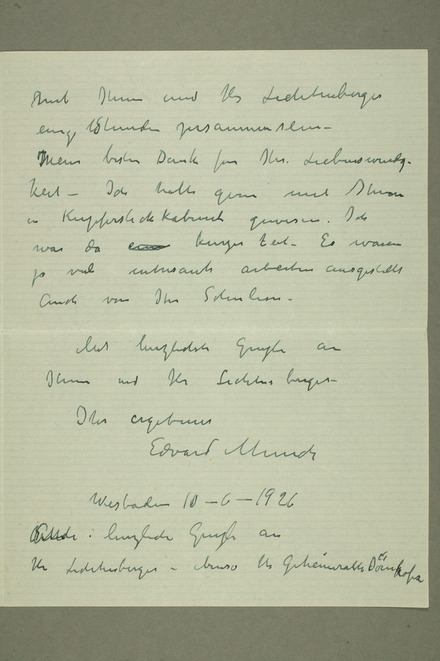 mit Ihnen und Hr Lichtenberger
einige Stunden zusammen sein –
Mein besten Dank für Ihr Liebenswürdig-
keit – Ich hätte gern mit Ihnen
in Kupferstichkabinett gewesen. Ich
war da kurze Zeit. Es waren
ja viel interessante arbeiten ausgestellt
Auch von Ihr
Mit herzlichste Grüße an
Ihnen und Hr Lichtenberger –
Ihr ergebener
Edvard Munch
Wiesbaden 10 – 6 – 1926
herzliche Grüße an
Hr Lichtenberger – ebenso Hr Geheimrath